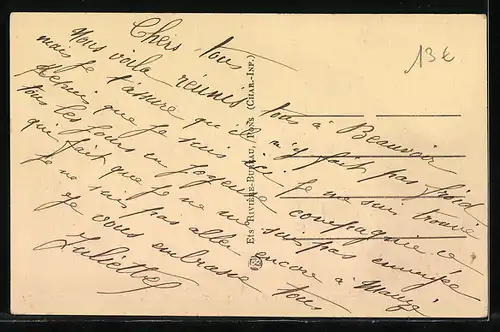 Chers tous
Nous voilà réunis tous à Beauvoir
mais je t'assure qu'il n'y fait pas froid
depuis que je suis ici je me suis trouvé
tous les jours en joyeuse compagnie ce
qui fait que je ne me suis pas ennuyée
je ne suis pas allée encore à Mauzé
je vous embrasse tous
Juliette
Ets RIVIÈRE-BUREAU, PONS (CHAR.-INF.)
13 €